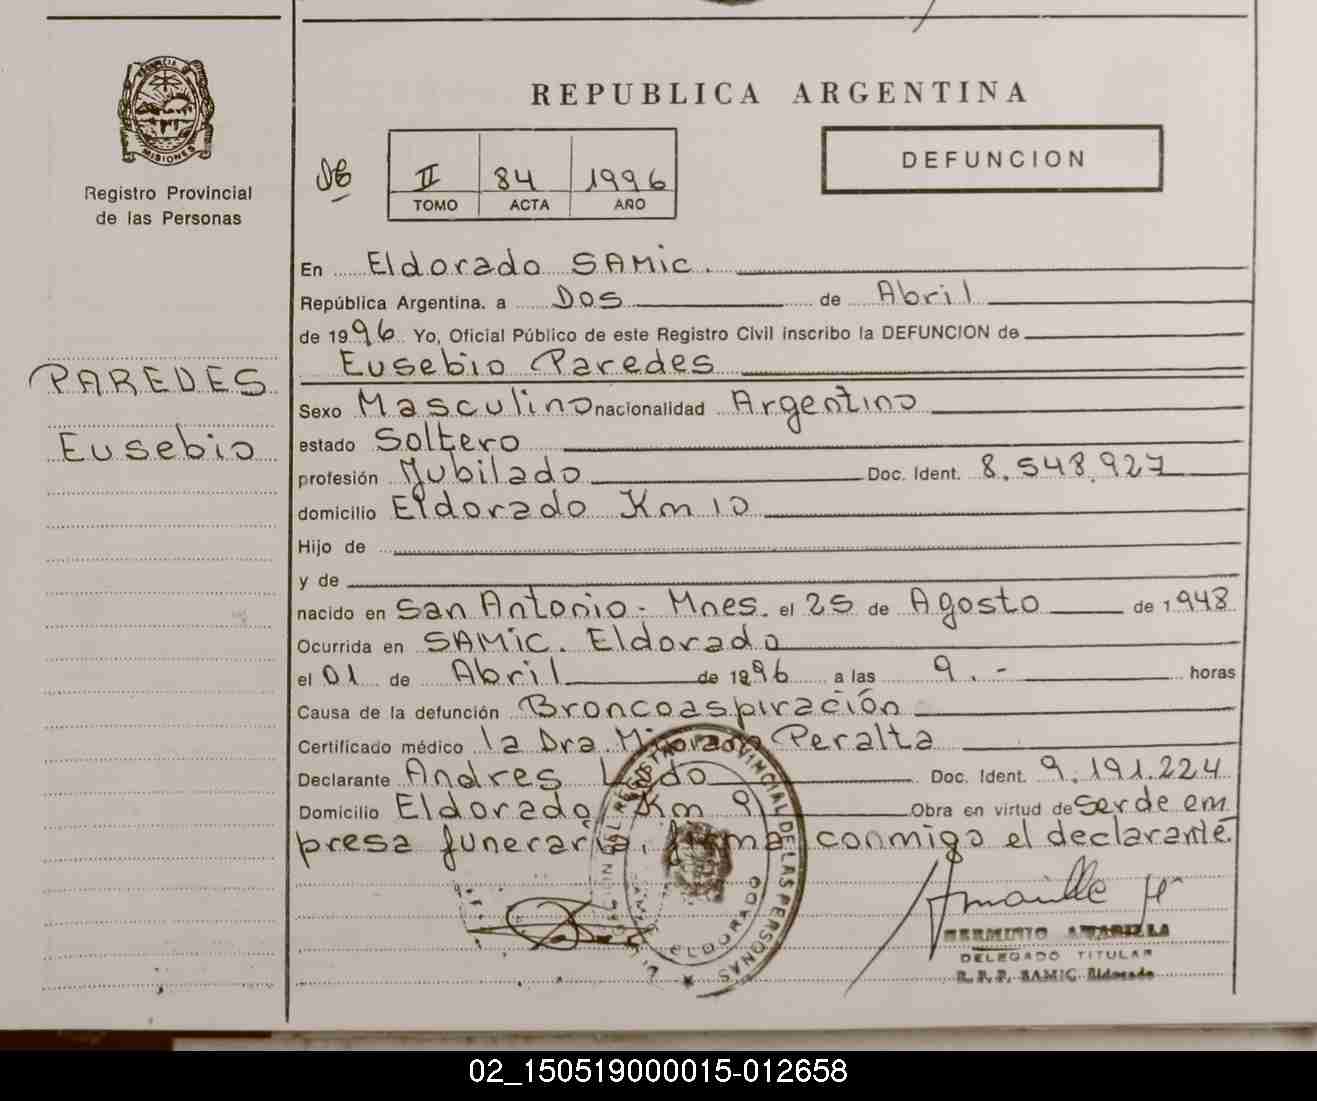 REPUBLICA ARGENTINA
MISIONES
Registro Provincial
de las Personas
II 84 1996
TOMO ACTA AÑO
DEFUNCION
PAREDES
Eusebio
En Eldorado SAMic.
República Argentina. a Dos de Abril
de 1996 Yo, Oficial Público de este Registro Civil inscribo la DEFUNCION de
Eusebio Paredes
Sexo Masculino nacionalidad Argentino
estado Soltero
profesión Jubilado Doc. Ident. 8.548.927
domicilio Eldorado Km 10
Hijo de
y de
nacido en San Antonio - Mnes. el 25 de Agosto de 1948
Ocurrida en SAMic. Eldorado
el 01 de Abril de 1996 a las 9.- horas
Causa de la defunción Broncoaspiración
Certificado médico la Dra. Peralta
Declarante Andres Doc. Ident. 9.191.224
Domicilio Eldorado Km 9 Obra en virtud de Ser de em
presa funeraria, firma conmigo el declarante.
REGISTRO PROVINCIAL DE LAS PERSONAS
ELDORADO
HERMINIO AMARILLA
DELEGADO TITULAR
R. P. P. SAMIC Eldorado
02_150519000015-012658